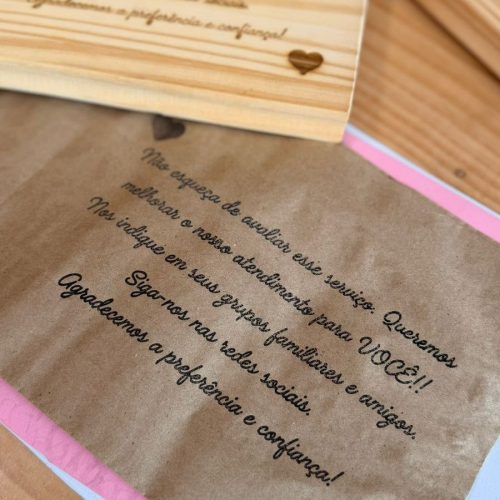 Agradecemos a preferência e confiança!
Não esqueça de avaliar esse serviço. Queremos
melhorar o nosso atendimento para VOCÊ!!
Nos indique em seus grupos familiares e amigos.
Siga-nos nas redes sociais.
Agradecemos a preferência e confiança!